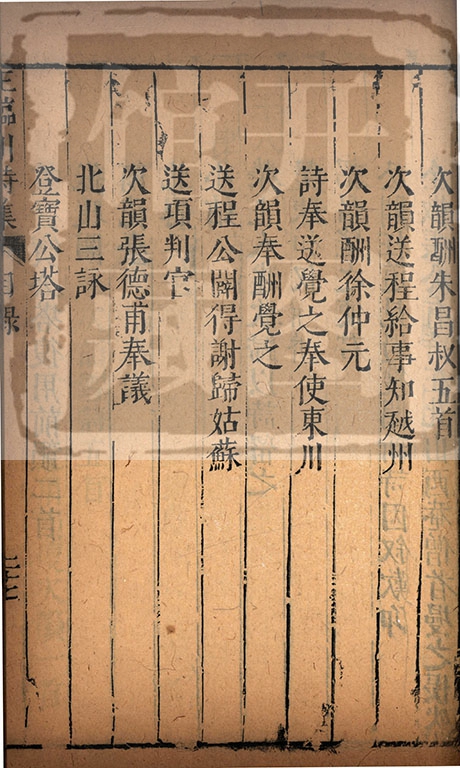 次韻酬朱昌叔五首
次韻送程給事知越州
次韻酬徐仲元
詩奉送覺之奉使東川
次韻奉酬覺之
送程公闢得謝歸姑蘇
送項判官
次韻張德甫奉議
北山三詠
登寶公塔
王臨川詩集 目錄